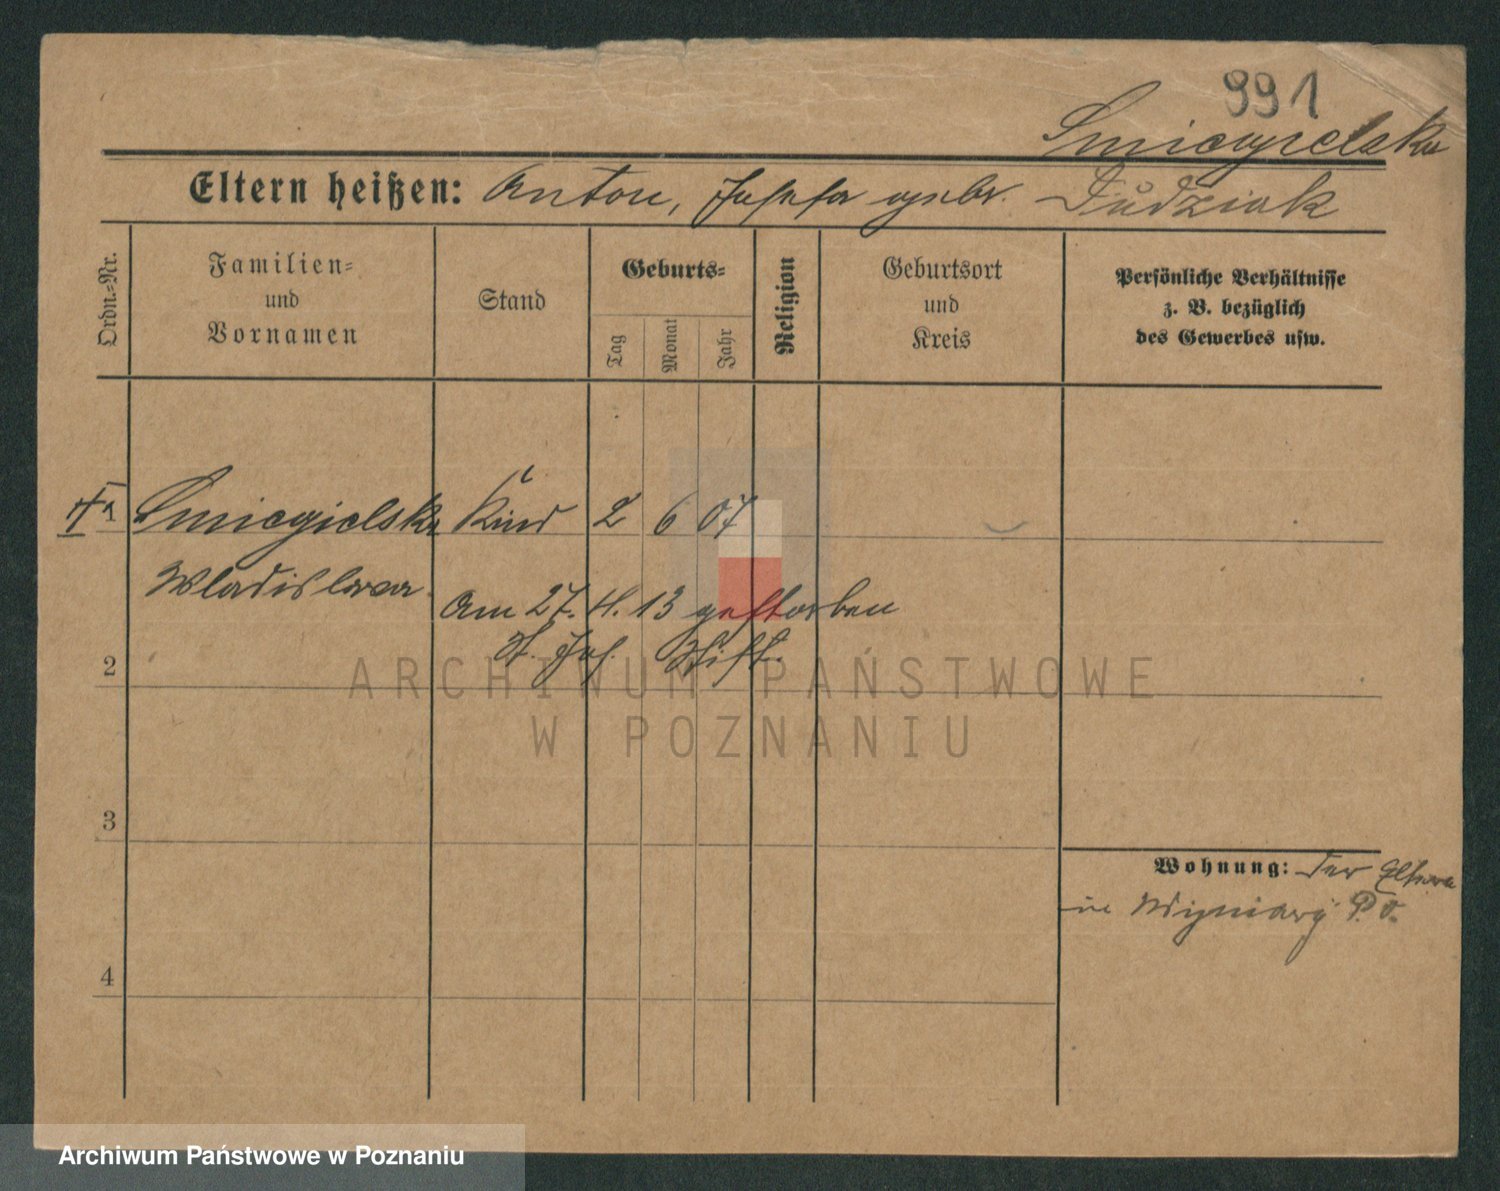 991
Smiegielska
Eltern heißen: Anton, Josefa gebr. Dudziak
Ordn.-Nr.
Familien-
und
Vornamen
Stand
Geburts-
Tag
Monat
Jahr
Religion
Geburtsort
und
Kreis
Persönliche Verhältnisse
z. B. bezüglich
des Gewerbes usw.
1 Smiegielska Kind 2 6 07
Wladislawa
Am 27. 4. 13 gestorben
St. Jos. Stift.
2
ARCHIWUM PAŃSTWOWE
W POZNANIU
3
Wohnung: der Eltern
in P. O.
4
Archiwum Państwowe w Poznaniu